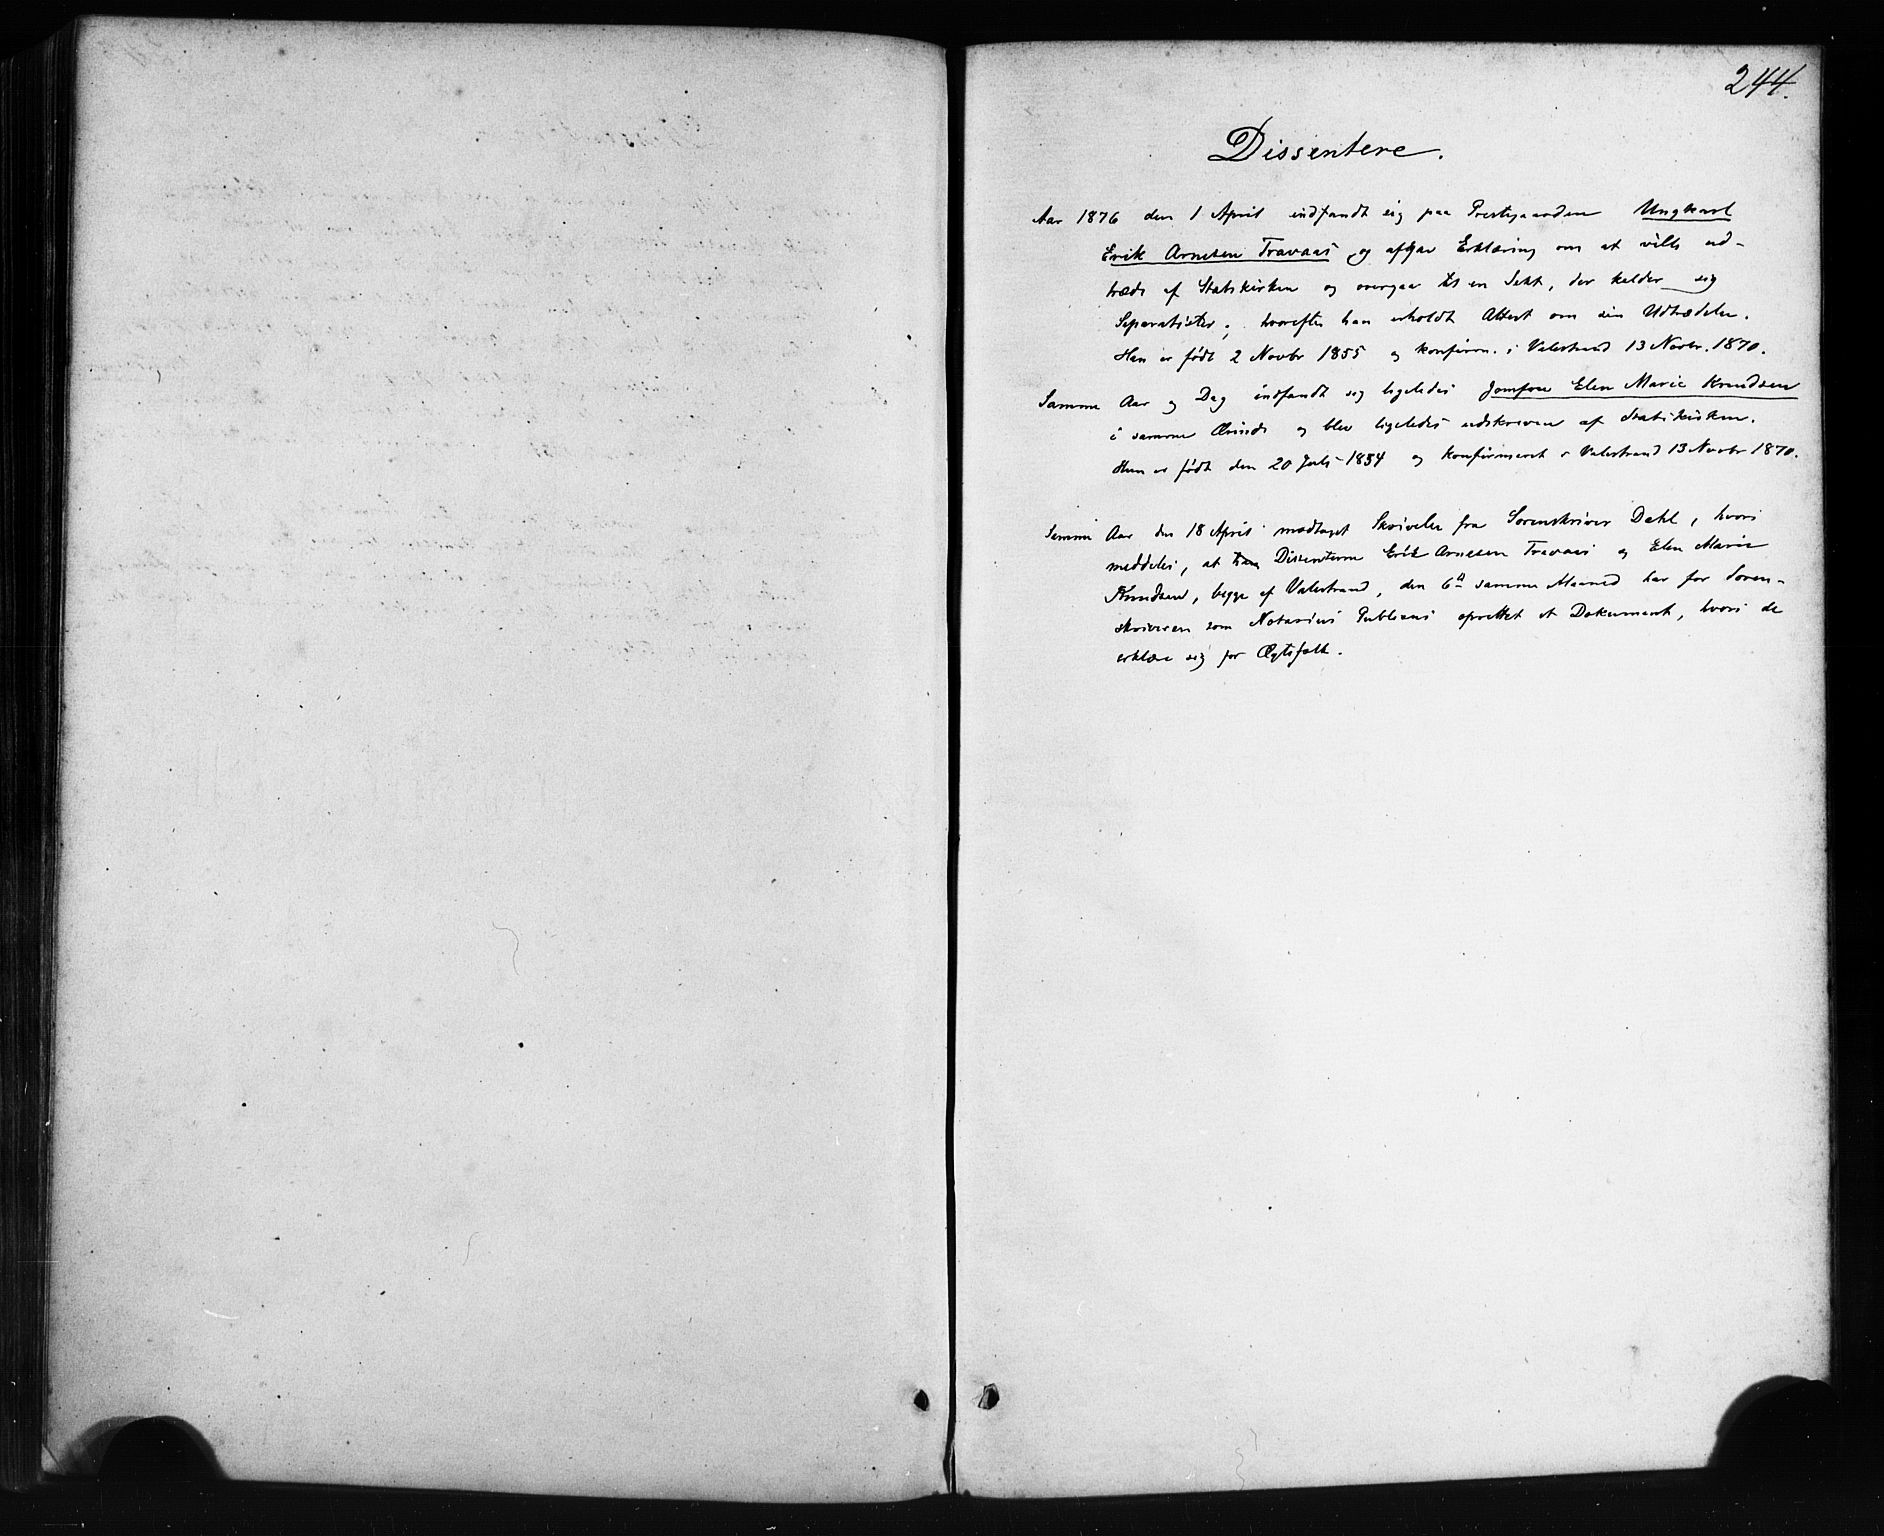 244.
Dissentere.
Aar 1876 den 1 April indfandt sig paa Prestegaarden Ungkarl
Erik Arnesen Travaas og afgav Erklæring om at ville ud-
træde af Statskirken og overgaa til en Sekt, der kalder sig
Separatister; hvorefter han erholdt Attest om sin Udtrædelse.
Han er født 2 Novbr 1855 og konfirm. i Valestrand 13 Novbr. 1870.
Samme Aar og Dag indfandt sig ligeledes Jomfru Elen Marie Knudsen
i samme Ærinde og blev ligeledes udskreven af Statskirken.
Hun er født den 20 Juli 1854 og konfirmeret i Valestrand 13 Novbr 1870.
Samme Aar den 18 April modtaget Skrivelse fra Sorenskriver Dahl, hvori
meddeles, at Dissenterne Erik Arnesen Travaas og Elen Marie
Knudsen, begge af Valestrand, den 6te samme Maaned har for Soren-
skriveren som Notarius Publicus oprettet et Dokument, hvori de
erklære sig for Ægtefolk.